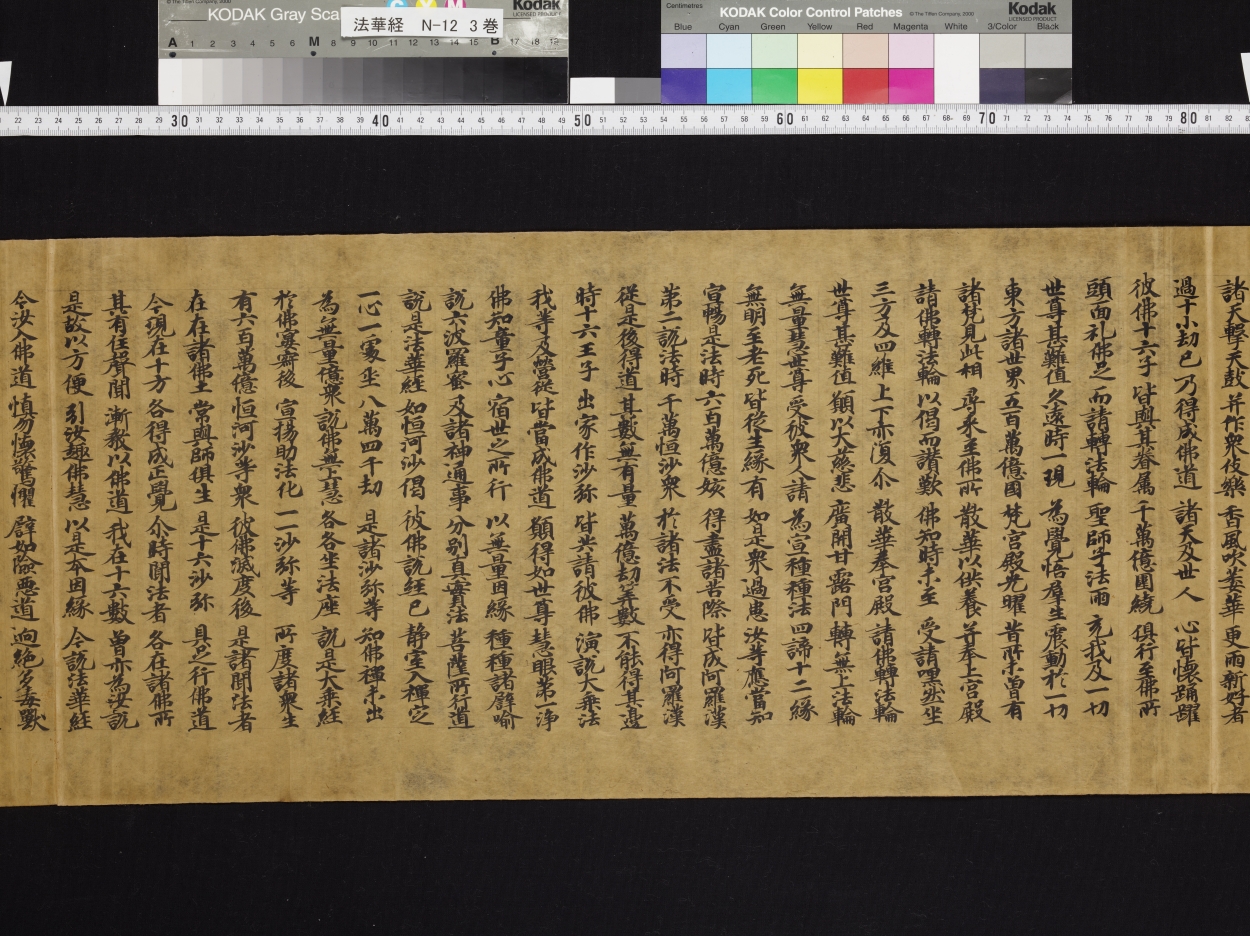 © The Tiffen Company, 2000
KODAK Gray Sca
Kodak
LICENSED PRODUCT
法華経 N-12 3巻
A 1 2 3 4 5 6 M 8 9 10 11 12 13 14 15 B 17 18 19
Centimetres
KODAK Color Control Patches
© The Tiffen Company, 2000
Kodak
LICENSED PRODUCT
Blue Cyan Green Yellow Red Magenta White 3/Color Black
22 23 24 25 26 27 28 29 30 31 32 33 34 35 36 37 38 39 40 41 42 43 44 45 46 47 48 49 50 51 52 53 54 55 56 57 58 59 60 61 62 63 64 65 66 67 68 69 70 71 72 73 74 75 76 77 78 79 80 81 82
諸天擊天鼓 并作衆伎樂 香風吹萎華 更雨新好者
過十小劫已 乃得成佛道 諸天及世人 心皆懷踊躍
彼佛十六子 皆與其眷屬 千萬億圍繞 俱行至佛所
頭面礼佛足 而請轉法輪 聖師子法雨 充我及一切
世尊甚難值 久遠時一現 為覺悟羣生 震動於一切
東方諸世界 五百萬億國 梵宮殿光曜 昔所未曾有
諸梵見此相 尋來至佛所 散華以供養 并奉上宮殿
請佛轉法輪 以偈而讚歎 佛知時未至 受請嘿然坐
三方及四維 上下亦復尒 散華奉宮殿 請佛轉法輪
世尊甚難值 願以大慈悲 廣開甘露門 轉無上法輪
無量慧世尊 受彼衆人請 為宣種種法 四諦十二緣
無明至老死 皆從生緣有 如是衆過患 汝等應當知
宣暢是法時 六百萬億姟 得盡諸苦際 皆成阿羅漢
第二說法時 千萬恒沙衆 於諸法不受 亦得阿羅漢
從是後得道 其數無有量 萬億劫筭數 不能得其邊
時十六王子 出家作沙弥 皆共請彼佛 演說大乘法
我等及營從 皆當成佛道 願得如世尊 慧眼第一淨
佛知童子心 宿世之所行 以無量因緣 種種諸譬喻
說六波羅蜜 及諸神通事 分別真實法 菩薩所行道
說是法華經 如恒河沙偈 彼佛說經已 静室入禪定
一心一處坐 八萬四千劫 是諸沙弥等 知佛禪未出
為無量億衆 說佛無上慧 各各坐法座 說是大乘經
於佛宴寂後 宣揚助法化 一一沙弥等 所度諸衆生
有六百萬億 恒河沙等衆 彼佛滅度後 是諸聞法者
在在諸佛土 常與師俱生 是十六沙弥 具足行佛道
今現在十方 各得成正覺 尒時聞法者 各在諸佛所
其有住聲聞 漸教以佛道 我在十六數 曾亦為汝說
是故以方便 引汝趣佛慧 以是本因緣 今說法華經
令汝入佛道 慎勿懷驚懼 譬如險惡道 迥絕多毒獸